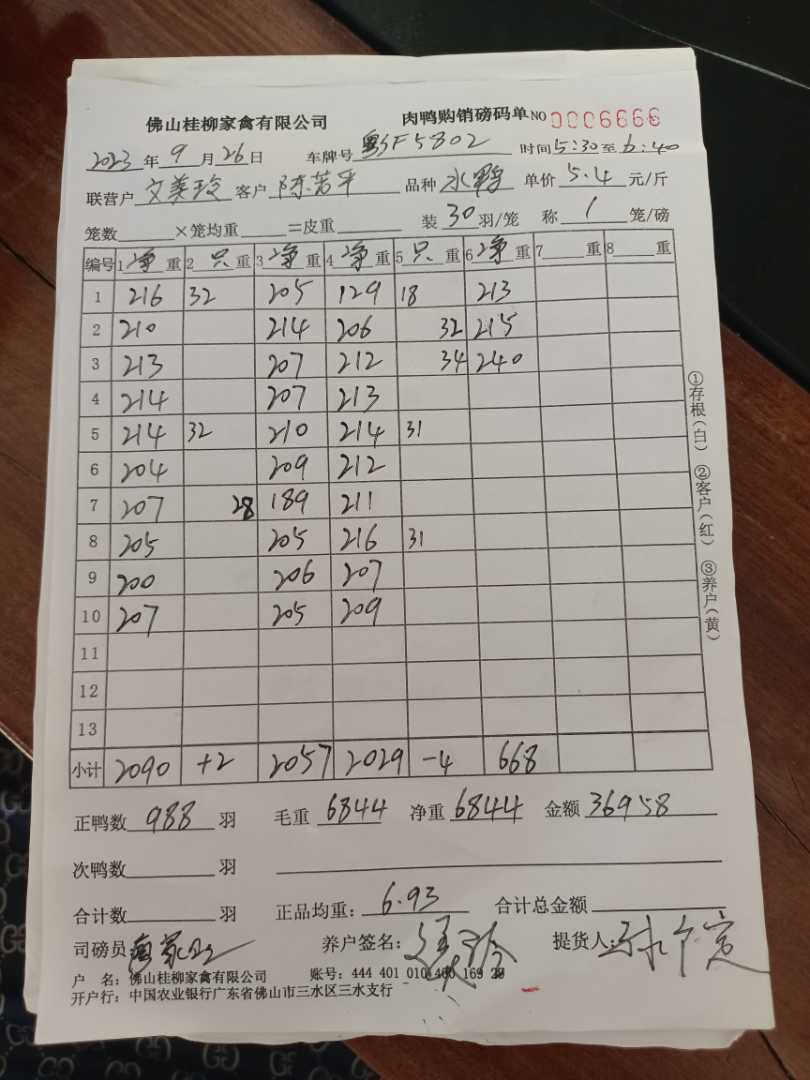 佛山桂柳家禽有限公司 肉鸭购销磅码单 NO 0006666
2023 年 9 月 26 日 车牌号 粤SF5802 时间 5:30 至 6:40
联营户 文美玲 客户 陈若平 品种 水鸭 单价 5.4 元/斤
笼数______×笼均重______=皮重______ 装 30 羽/笼 称 1 笼/磅
编号 1 净 重 2 只 重 3 净 重 4 净 重 5 只 重 6 净 重 7 重 8 重
1 216 32 205 129 18 213
2 210 214 206 32 215
3 213 207 212 34 240
4 214 207 213
5 214 32 210 214 31
6 204 209 212
7 207 28 189 211
8 205 205 216 31
9 200 206 207
10 207 205 209
11
12
13
小计 2090 +2 2057 2029 -4 668
正鸭数 988 羽 毛重 6844 净重 6844 金额 36958
次鸭数______羽
合计数______羽 正品均重: 6.93 合计总金额______
司磅员 养户签名: 提货人:
户 名: 佛山桂柳家禽有限公司 账号: 444 401 010 400 169 29
开户行: 中国农业银行广东省佛山市三水区三水支行
①存根(白) ②客户(红) ③养户(黄)